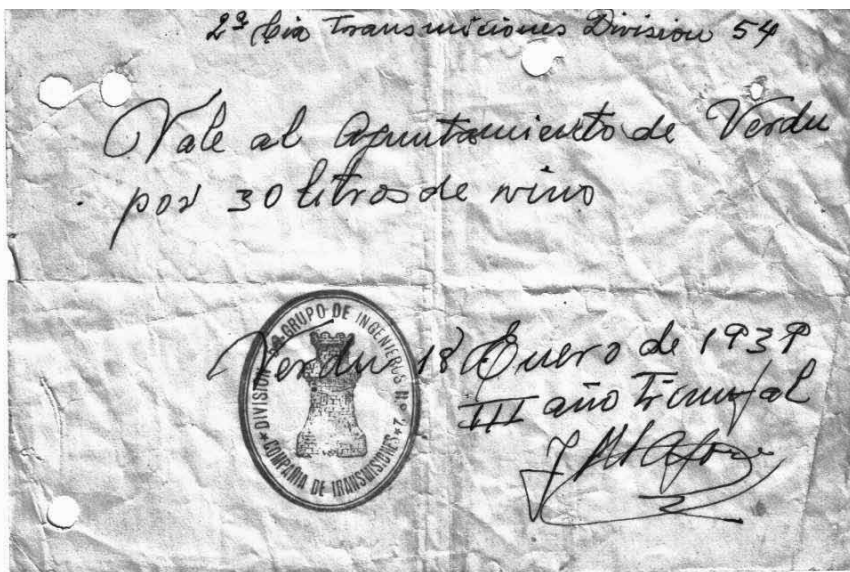 2ª Cia Transmiciones Division 54
Vale al Ayuntamiento de Verdu
por 30 litros de vino
Verdu 18 Enero de 1939
III año Triunfal
DIVISION GRUPO DE INGENIEROS N.º 7
COMPAÑIA DE TRANSMISIONES